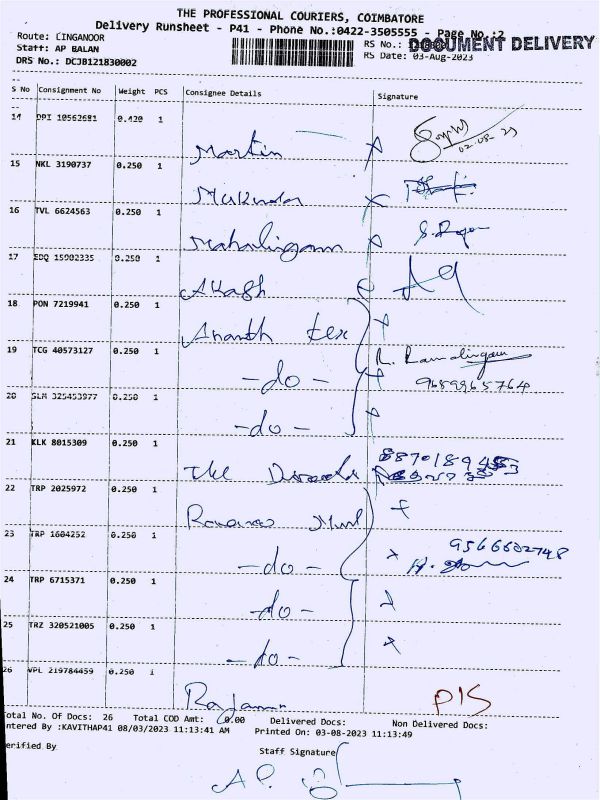 THE PROFESSIONAL COURIERS, COIMBATORE
Delivery Runsheet - P41 - Phone No.:0422-3505555 - Page No.:2
Route: CINGANOOR
RS No.:
DOCUMENT DELIVERY
Staff: AP BALAN
RS Date: 03-Aug-2023
DRS No.: DCJB121830002
S No Consignment No Weight PCS Consignee Details Signature
14 DPI 10562681 0.420 1 Martin
02-08-23
15 NKL 3190737 0.250 1
16 TVL 6624563 0.250 1 Mahalingam
17 EDQ 15902335 0.250 1 Akash
18 PON 7219941 0.250 1 Ananth tex
19 TCG 40573127 0.250 1 -do- R. Ramalingam
9659965764
20 SLM 325453977 0.250 1 -do-
21 KLK 8015309 0.250 1 The
22 TRP 2025972 0.250 1
23 TRP 1604252 0.250 1 -do- 9566602748
24 TRP 6715371 0.250 1 -do-
25 TRZ 320521005 0.250 1 -do-
26 VPL 219784459 0.250 1 PIS
Total No. Of Docs: 26 Total COD Amt: 0.00 Delivered Docs: Non Delivered Docs:
ntered By :KAVITHAP41 08/03/2023 11:13:41 AM Printed On: 03-08-2023 11:13:49
erified By Staff Signature